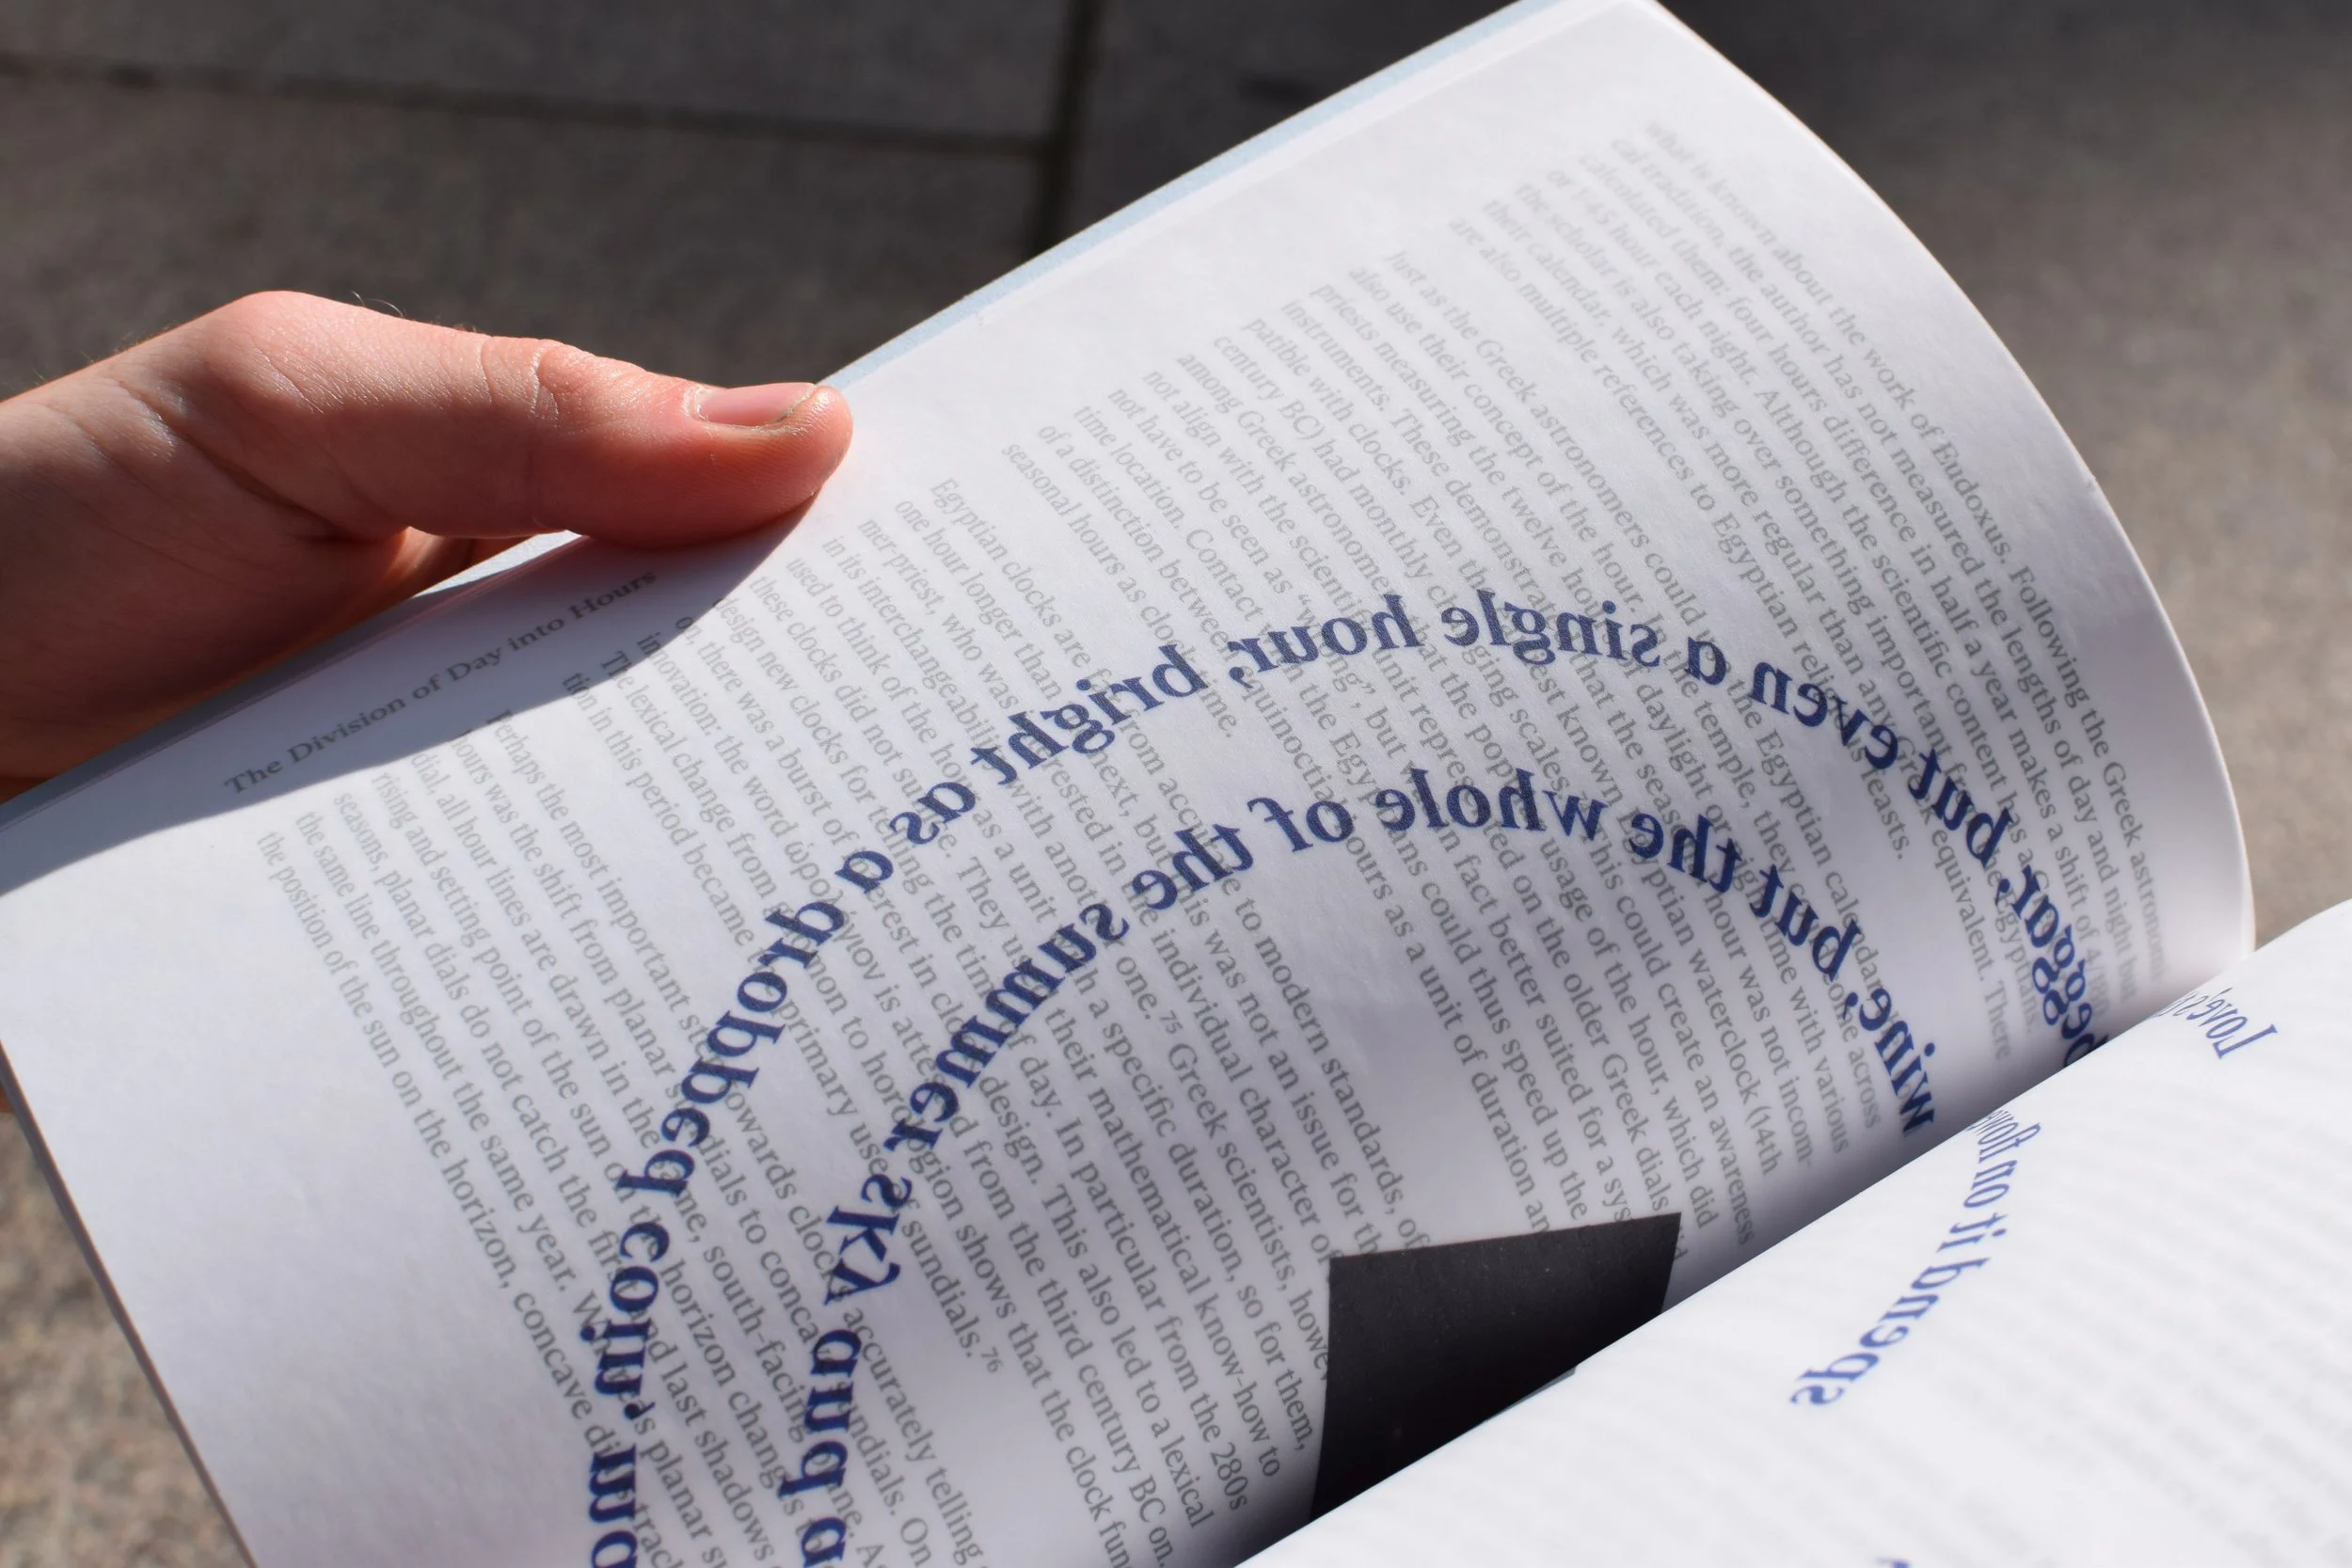 The Division of Day into Hours
what is known about the work of Eudoxus. Following the Greek astronomi
cal tradition, the author has not measured the lengths of day and night but
calculated them: four hours difference in half a year makes a shift of
or 1/45 hour each night. Although the scientific content has a
the scholar is also taking over something important from the Egyptians:
their calendar, which was more regular than any Greek equivalent. There
are also multiple references to Egyptian religious feasts.
Just as the Greek astronomers could the Egyptian calendar, one across
also use their concept of the hour. In the temple, they
priests measuring the twelve hours of daylight or night time with various
instruments. These demonstrate that the seasonal hour was not incom-
patible with clocks. Even the oldest known Egyptian waterclock (14th
century BC) had monthly changing scales. This could create an awareness
among Greek astronomers that the popular usage of the hour, which did
not align with the scientific unit represented on the older Greek dials
not have to be seen as “wrong”, but in fact better suited for a sys
time location. Contact with the Egyptians could thus speed up the
of a distinction between equinoctial hours as a unit of duration an
seasonal hours as clock time.
Egyptian clocks are far from accurate to modern standards, of
one hour longer than the next, but this was not an issue for th
mer-priest, who was interested in the individual character of
in its interchangeability with another one.75 Greek scientists, howev
used to think of the hour as a unit with a specific duration, so for them,
these clocks did not suffice. They used their mathematical know-how to
design new clocks for telling the time of day. In particular from the 280s
on, there was a burst of interest in clock design. This also led to a lexical
innovation: the word ὡρολόγιον is attested from the third century BC on.
The lexical change from gnomon to horologion shows that the clock fun
tion in this period became the primary use of sundials.76
Perhaps the most important step towards clocks accurately telling
hours was the shift from planar sundials to concave sundials. On
dial, all hour lines are drawn in the same, south-facing plane. As
rising and setting point of the sun on the horizon changes
seasons, planar dials do not catch the first and last shadows
the same line throughout the same year. Whereas planar
the position of the sun on the horizon, concave dials track
beggar, but even a single hour, bright as a dropped coin, mo
wine, but the whole of the summer sky and a
Love's
spend it on